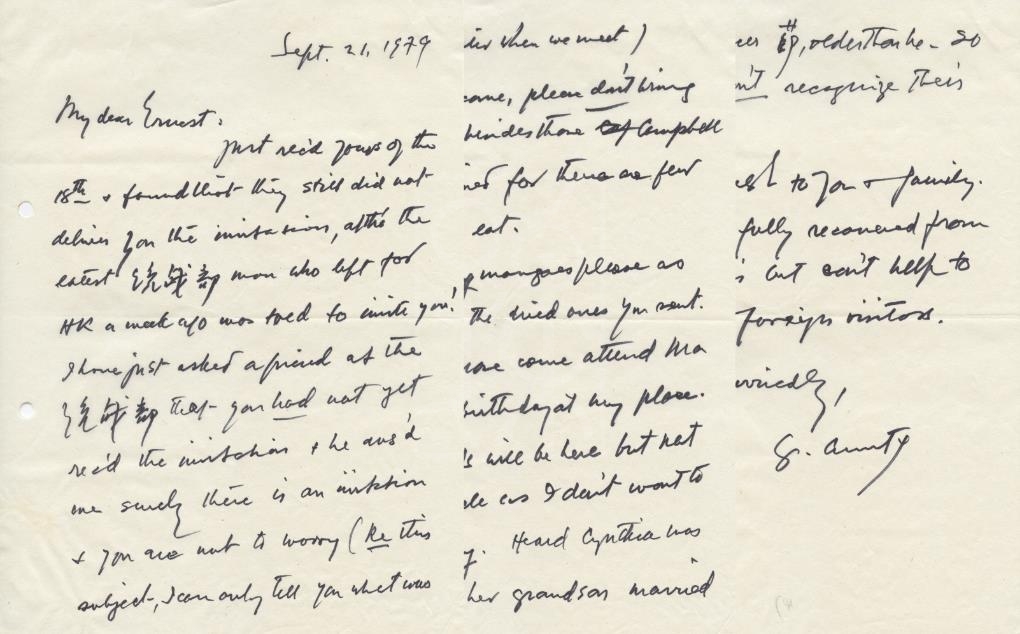 Sept. 21, 1979
My dear Ernest:
Just rec'd yours of the
18th & found that they still did not
deliver you the invitation, altho the
latest 統战部 man who left for
HK a week ago was told to invite you!
I have just asked a friend at the
統战部 that you had not yet
rec'd the invitation & he ans'd
me surely there is an invitation
& you are not to worry (Re this
subject, I can only tell you what was
when we meet)
come, please don't bring
besides those of Campbell
for there are few
eat.
mangoes please as
the dried ones you sent.
come attend Ma
birthday at my place.
's will be here but not
as I don't want to
Heard Cynthia was
her grandson married
older than he. So
n't recognize their
to you & family.
fully recovered from
but can't help to
foreign visitors.
G. Aunty